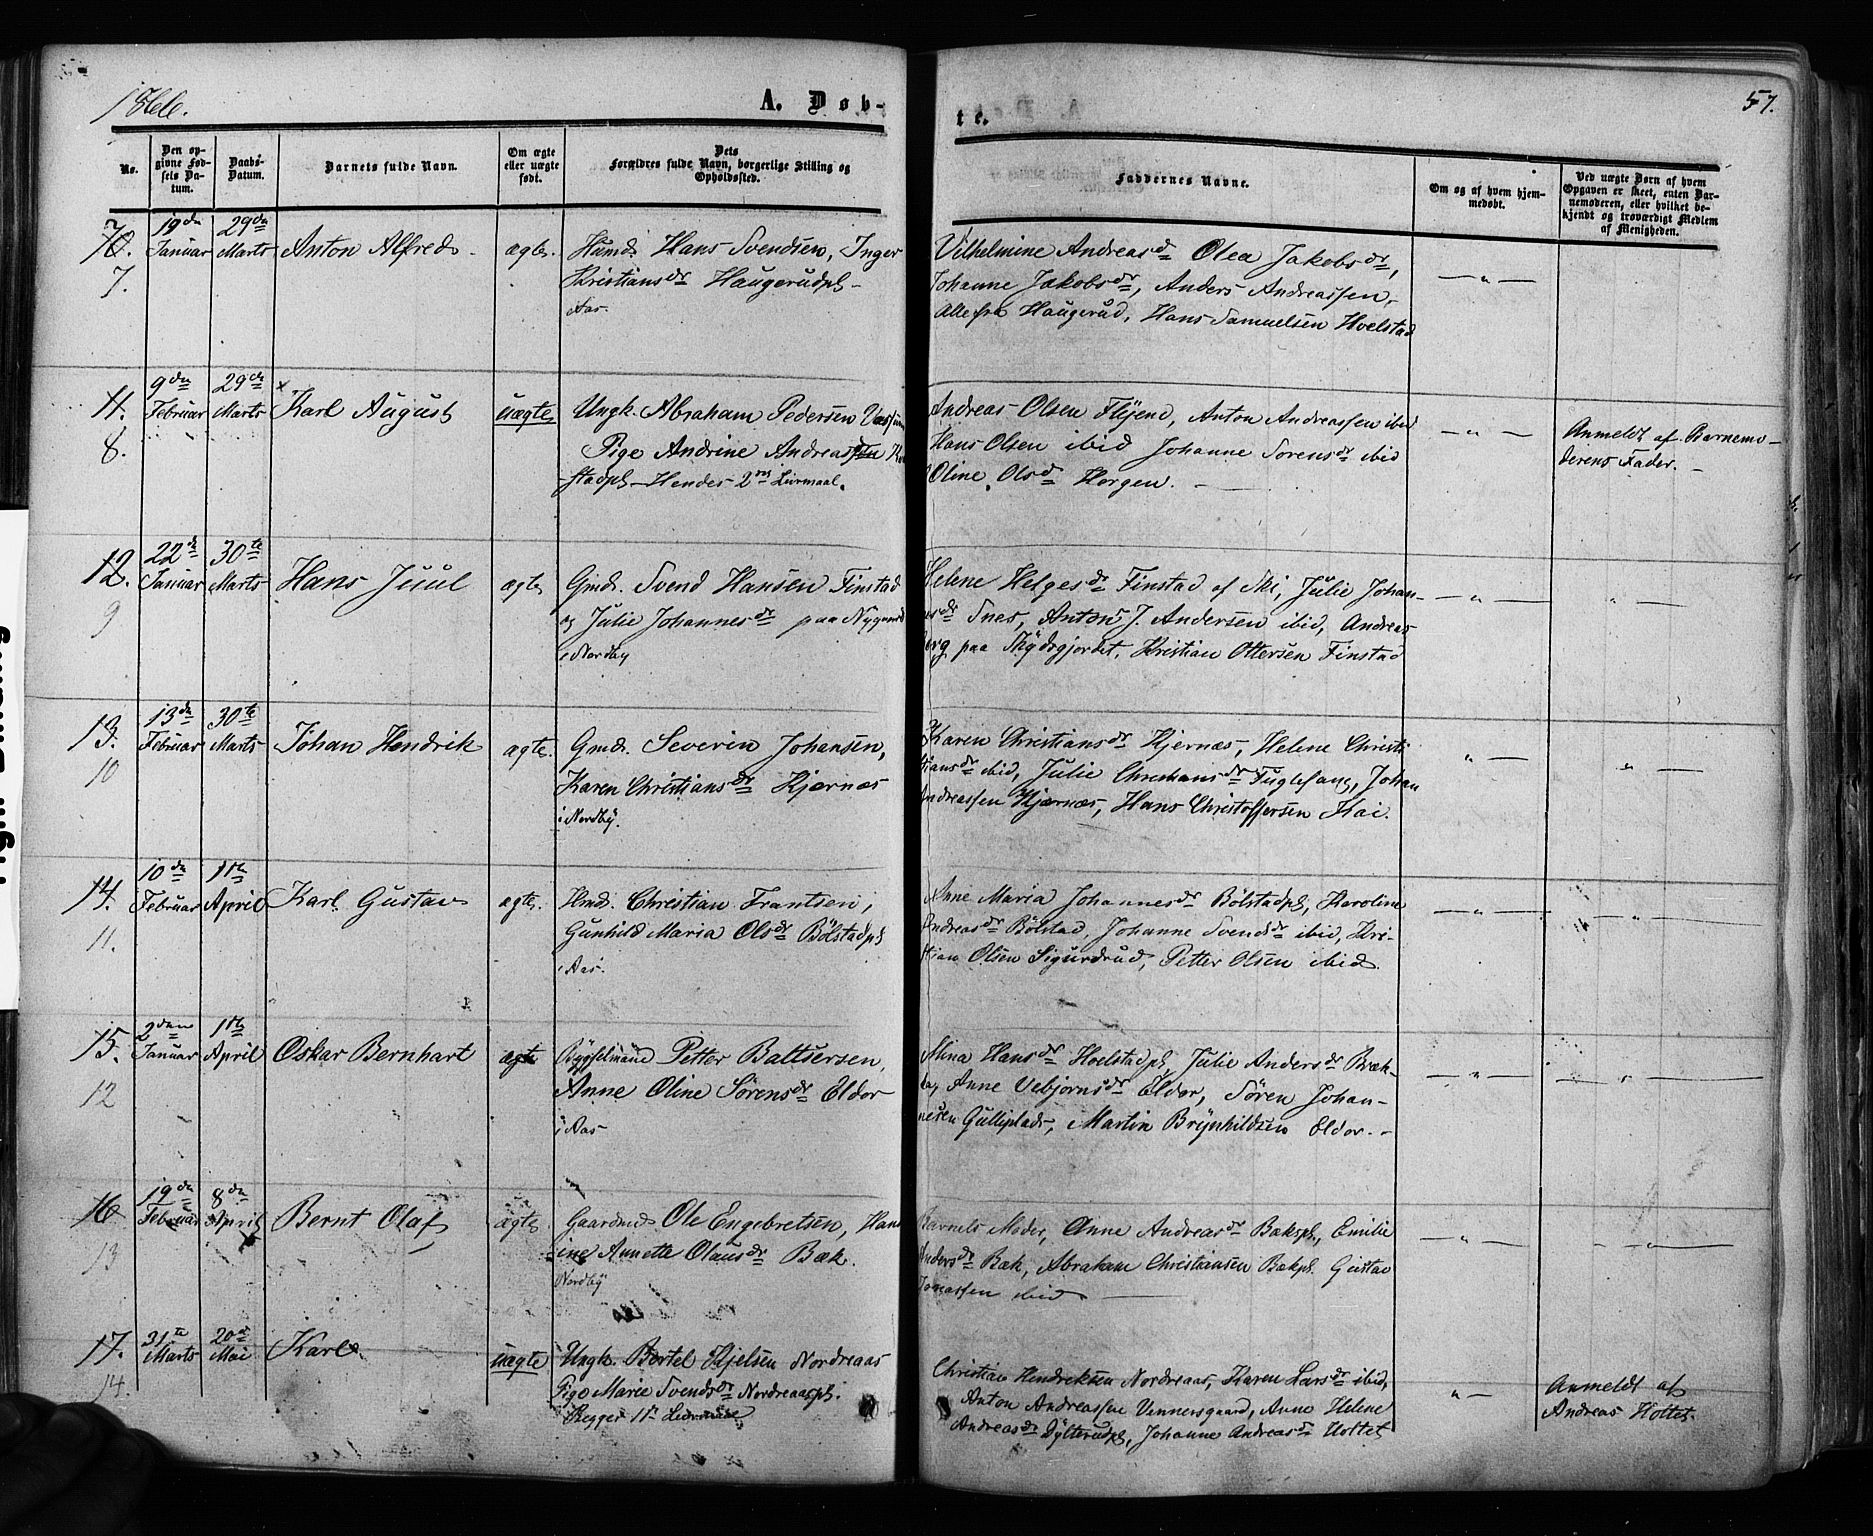 1866.
A. Døb-
te.
57.
No.
Den op-
givne Fød-
sels Da-
tum.
Daabs-
Datum.
Barnets fulde Navn.
Om ægte
eller uægte
født.
Dets
Forældres fulde Navn, borgerlige Stilling og
Opholdssted.
Faddernes Navne.
Om og af hvem hjem-
medøbt.
Ved uægte Børn af hvem
Opgaven er skeet, enten Bar-
nemoderen, eller hvilket be-
kjendt og troværdigt Medlem
af Menigheden.
10.
7.
19de
Januar
29de
Marts
Anton Alfred
ægte
Huusmd. Hans Svendsen, Inger
Kristiansdr Haugerudpl
Aas.
Vilhelmine Andreasdr Olea Jakobsdr,
Johanne Jakobsdr, Anders Andreassen,
Alle fra Haugerud, Hans Samuelsen Hvelstad
— " —
11.
8.
9de
Februar
29de
Marts
x
Karl August
uægte
Ungk. Abraham Pedersen
Pige Andrine Andreas
stadpl – Hendes 2det Leiermaal.
Andreas Olsen Fløjend, Anton Andreassen ibid
Hans Olsen ibid Johanne Sorensdr ibid
Oline Olsdr Horgen.
— " —
Anmeldt af Barnemo-
derens Fader.
12.
9
22de
Januar
30te
Marts
Hans Juul
ægte
Gmd. Svend Hansen Finstad
og Julie Johannesdr paa Nygaard
i Nordby
Helene Helgesdr Finstad af Ski, Julie Johan-
nesdr Snes, Anton J. Andersen ibid, Andreas
paa Thydsgjordet, Kristian Ottersen Finstad
— " —
— " —
13.
10
13de
Februar
30te
Marts
Johan Hendrik
ægte.
Gmd. Severin Johansen,
Karen Christiansdr Kjærnæs
i Nordby.
Karen Christiansdr Kjernæs, Helene Christi-
ansdr ibid, Julie Christiansdr Fuglesang, Johan
Andreassen Kjærnæs, Hans Christoffersen Kai.
— " —
— " —
14.
11.
10de
Februar
1ste
April
Karl Gustav
ægte.
Hmd. Christian Frantsen,
Gunhild Maria Olsdr Bølstadpl
i Aas.
Anne Maria Johannesdr Bølstadpl, Karoline
Andreasdr Bølstad, Johanne Svendsdr ibid, Kri-
stian Olsen Sigurdrud, Petter Olsen ibid.
— " —
— " —
15.
12
2den
Januar
1ste
April
Oskar Bernhart
ægte
Bygselmand Petter Baltsersen,
Anne Oline Sørensdr Eldor
i Aas
Mina Hansdr Hvelstadpl, Julie Andersdr Bæk-
Anne Vebjørnsdr Eldor, Søren Johan-
nesen Gulliplads, Martin Brynhildsen Eldor.
— " —
— " —
16
13
19de
Februar
8de
April
Bernt Olaf
ægte
Gaardmd Ole Engebretsen, Han-
ine Annette Olausdr Bæk.
Nordby
Barnets Moder, Anne Andreasdr Bækspl, Emilie
Andersdr Bæk, Abraham Christiansen Bækpl. Gustav
Tomassen ibid
— " —
— " —
17.
14.
31te
Marts
20de
Mai
Karl
uægte
Ungk. Bertel Kjelsen Nordreaas
Pige Marie Svendsdr Nordreaaspl.
Begges 1ste Leiermaal
Christian Hendriksen Nordreaas, Karen Larsdr ibid,
Anton Andreassen Vinnersgaard, Anne Helene
Andreasdr Dylterudpl, Johanne Andreasdr Holtet
" —
Anmeldt af
Andreas Holtet.